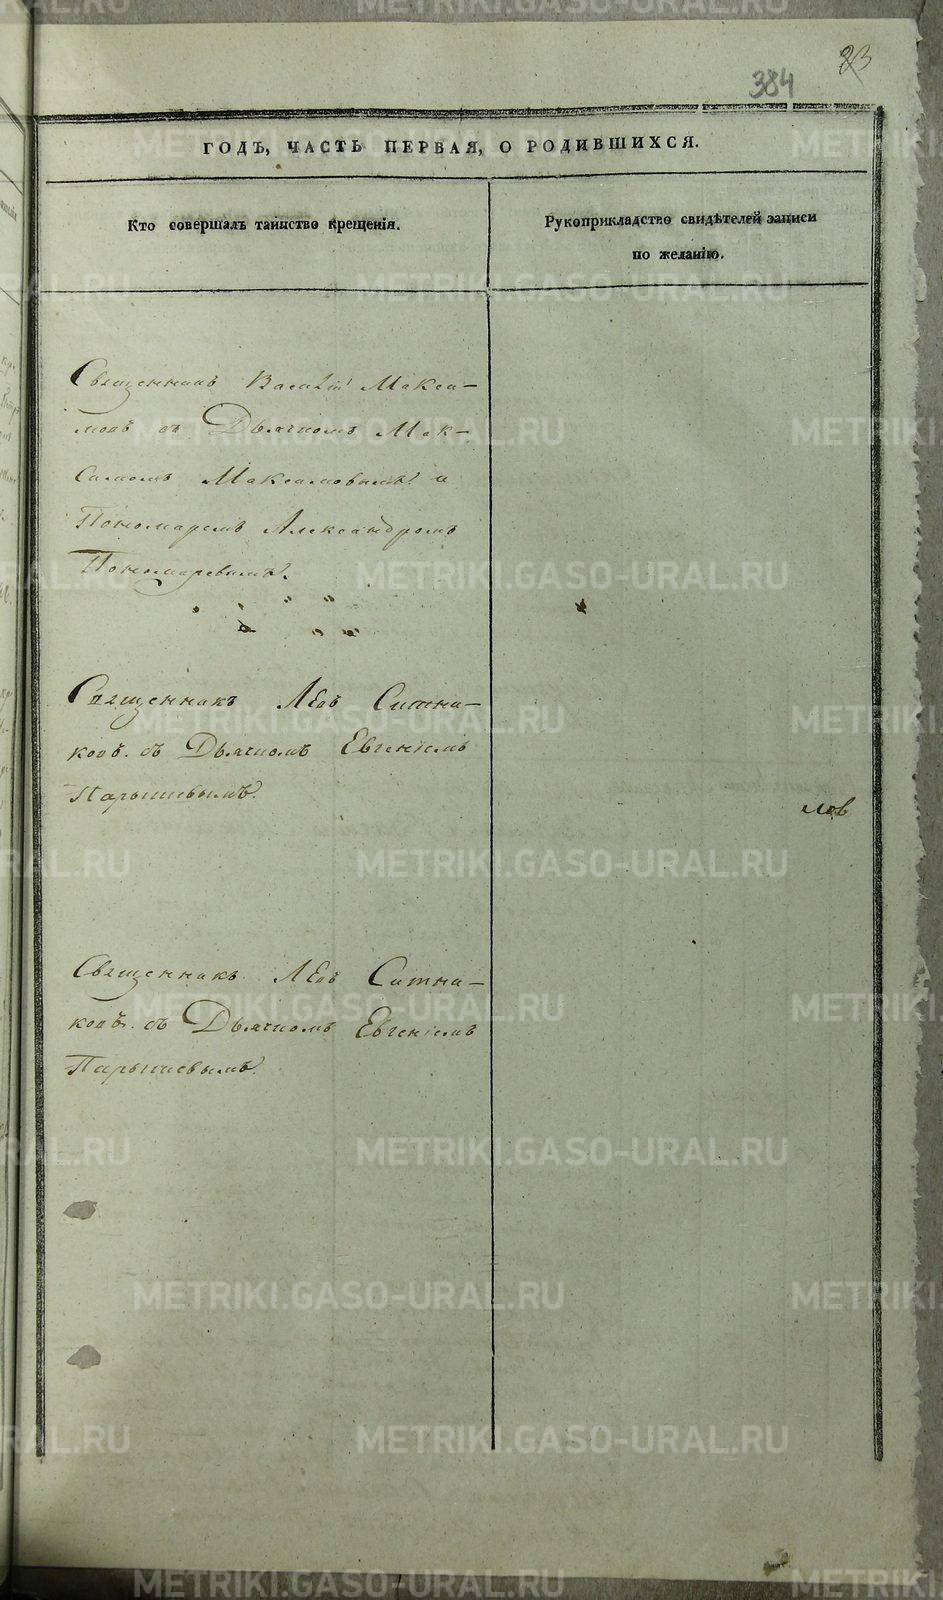 33
384
ГОДЪ, ЧАСТЬ ПЕРВАЯ, О РОДИВШИХСЯ.
Кто совершалъ таинство крещенія.
Рукоприкладство свидѣтелей записи
по желанію.
Священникъ Василій Макси–
мовъ съ Дьячкомъ Мак–
симомъ Максимовымъ и
Пономаремъ Александромъ
Пономаревымъ.
Священникъ Левъ Ситни–
ковъ. съ Дьячкомъ Евгеніемъ
Парышевымъ.
лов
Священникъ Левъ Ситни–
ковъ. съ Дьячкомъ Евгеніемъ
Парышевымъ.
METRIKI.GASO-URAL.RU